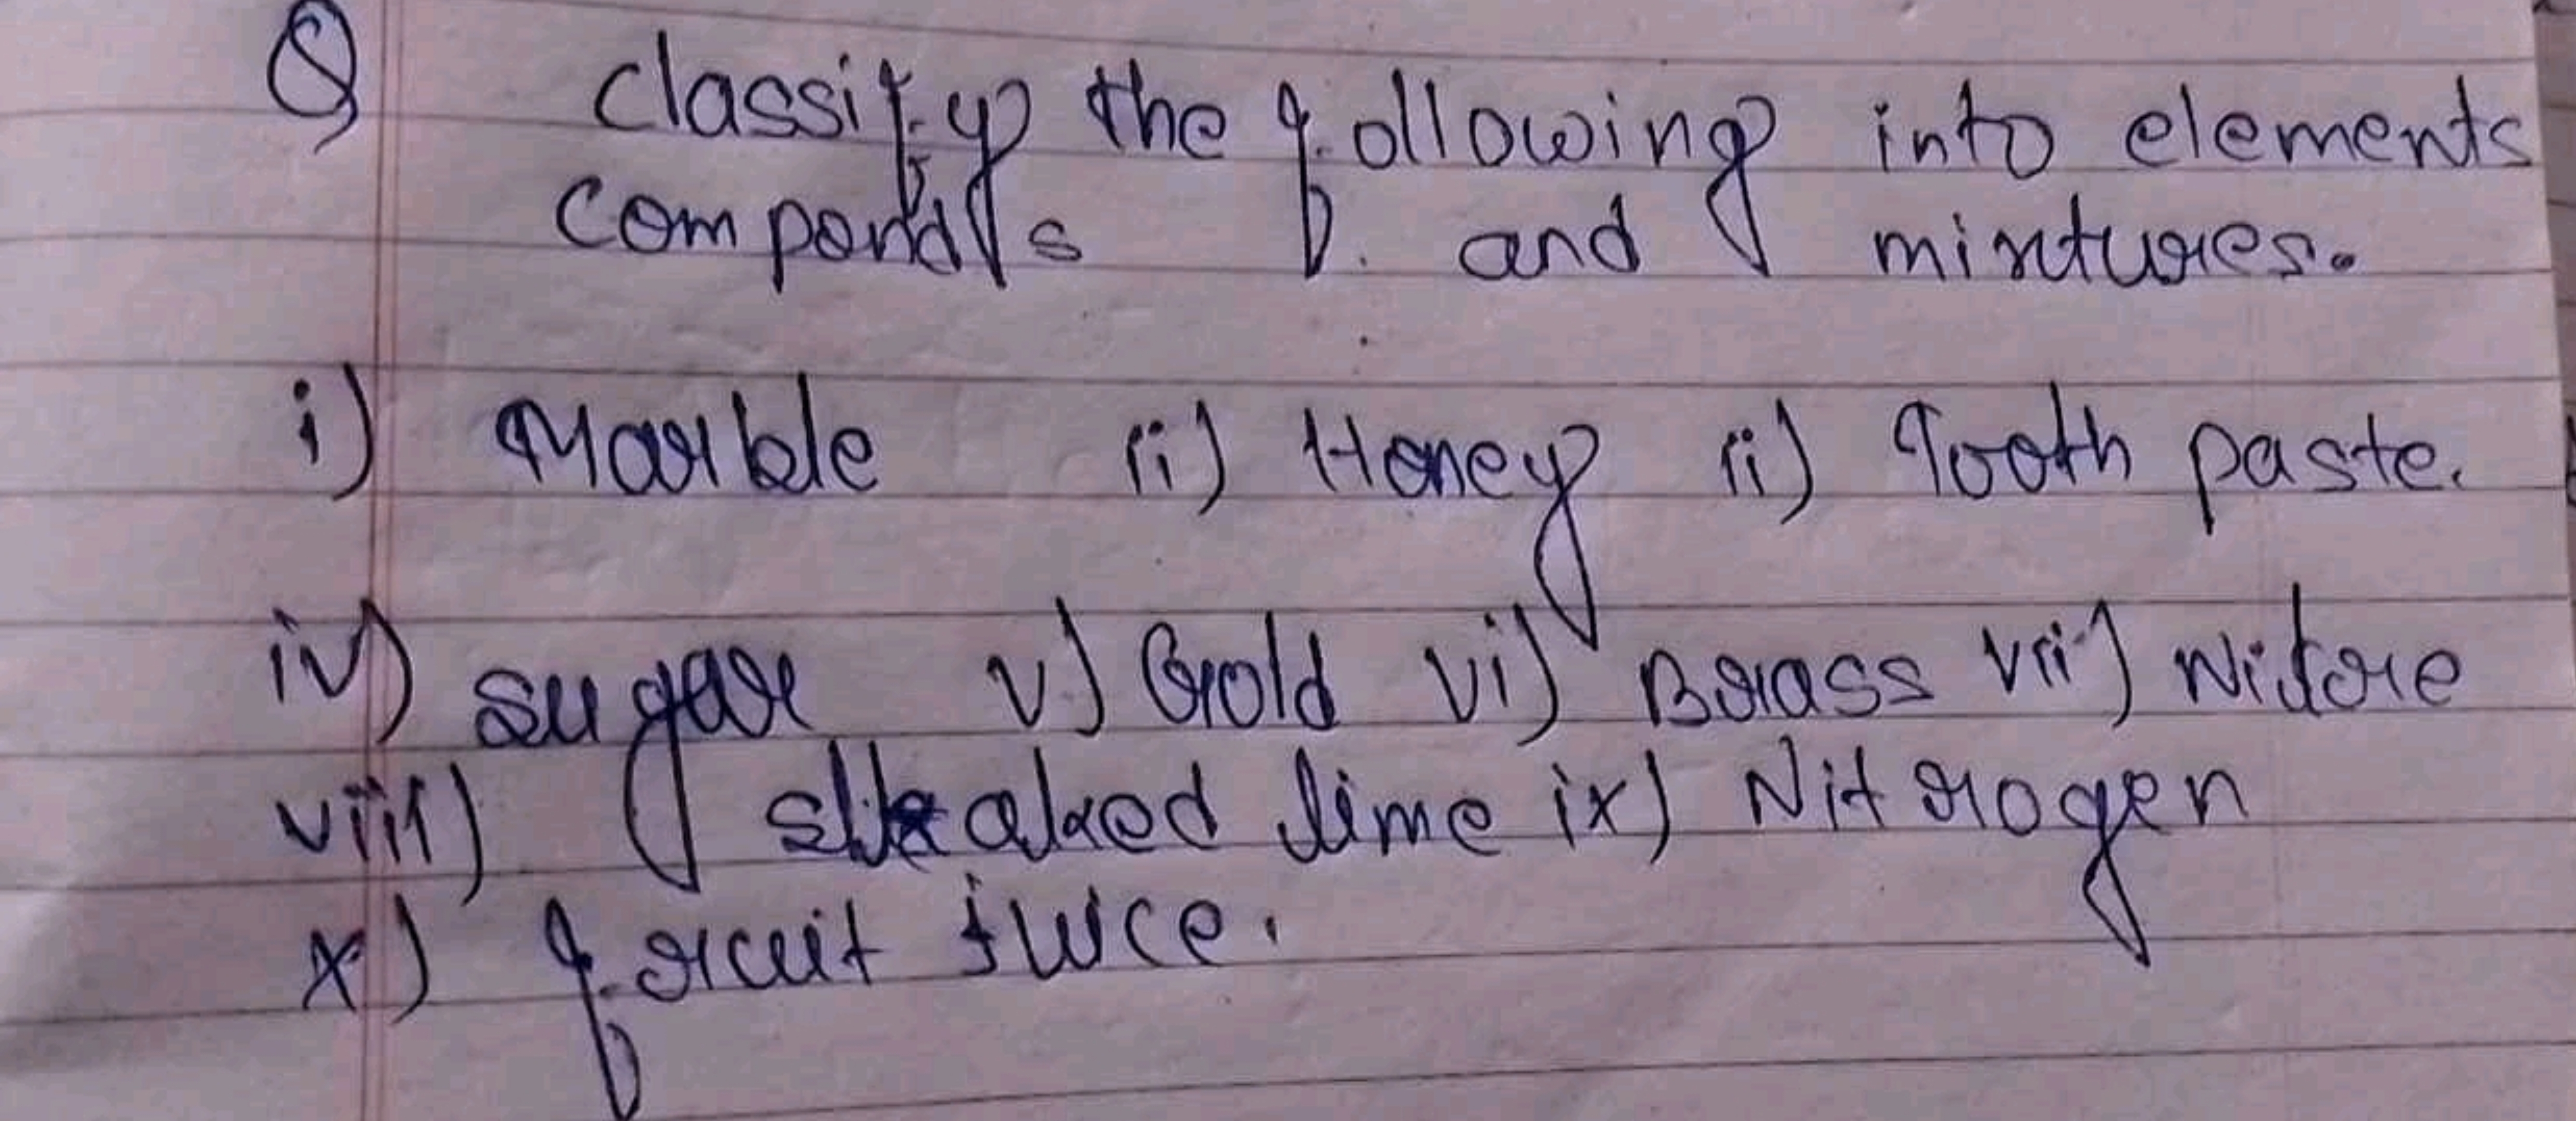 Q classify the following into elements
componds and mixtures.
i) Marble ii) Honey ii) Tooth paste.
iv) sugar v) Gold vi) Brass vii) Nitre
viii) slaked lime ix) Nitrogen
x) fruit juice.